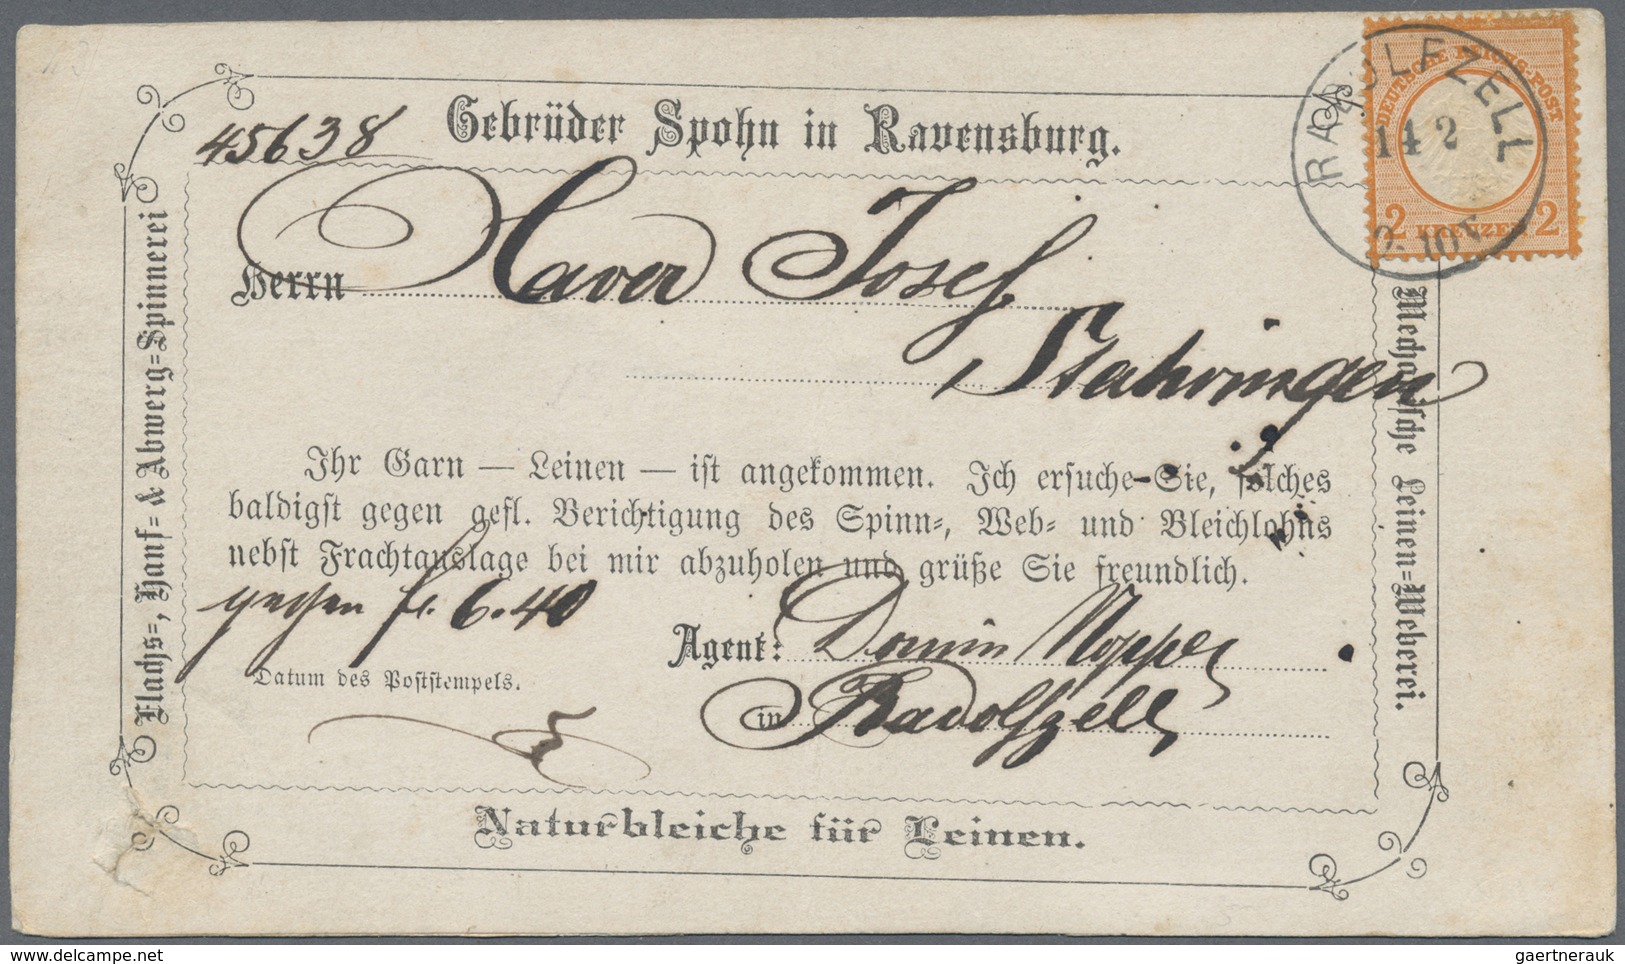 45638
Gebrüder Spohn in Ravensburg.
RADOLFZELL
14 2
DEUTSCHE REICHS-POST
2 KREUZER 2
Herrn Xaver Josef
Stahringen
Flachs-, Hanf- & Abwerg-Spinnerei
Mechanische Leinen-Weberei.
Ihr Garn — Leinen — ist angekommen. Ich ersuche Sie, solches
baldigst gegen gefl. Berichtigung des Spinn-, Web- und Bleichlohns
nebst Frachtauslage bei mir abzuholen und grüße Sie freundlich.
gegen fl. 6.40
Agent: Domin Nopper
Datum des Poststempels.
in Radolfzell
Naturbleiche für Leinen.
delcampe.net
gaertnerauk